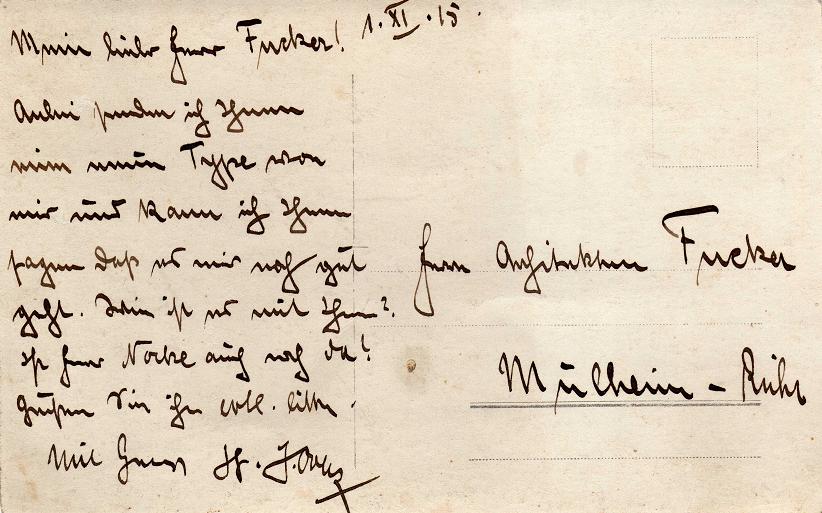 1. XI. 15.
Mein lieber Herr Fucker!
Anbei senden ich Ihnen
eine neuen Type von
mir und kann ich Ihnen
sagen daß es mir noch gut
geht. Wie ist es mit Ihnen?
Ist Herr Nocke auch noch da?
Grüßen Sie ihn evtl. bitte.
Mit Gruss
Herrn Architekten Fucker
Mülheim - Ruhr